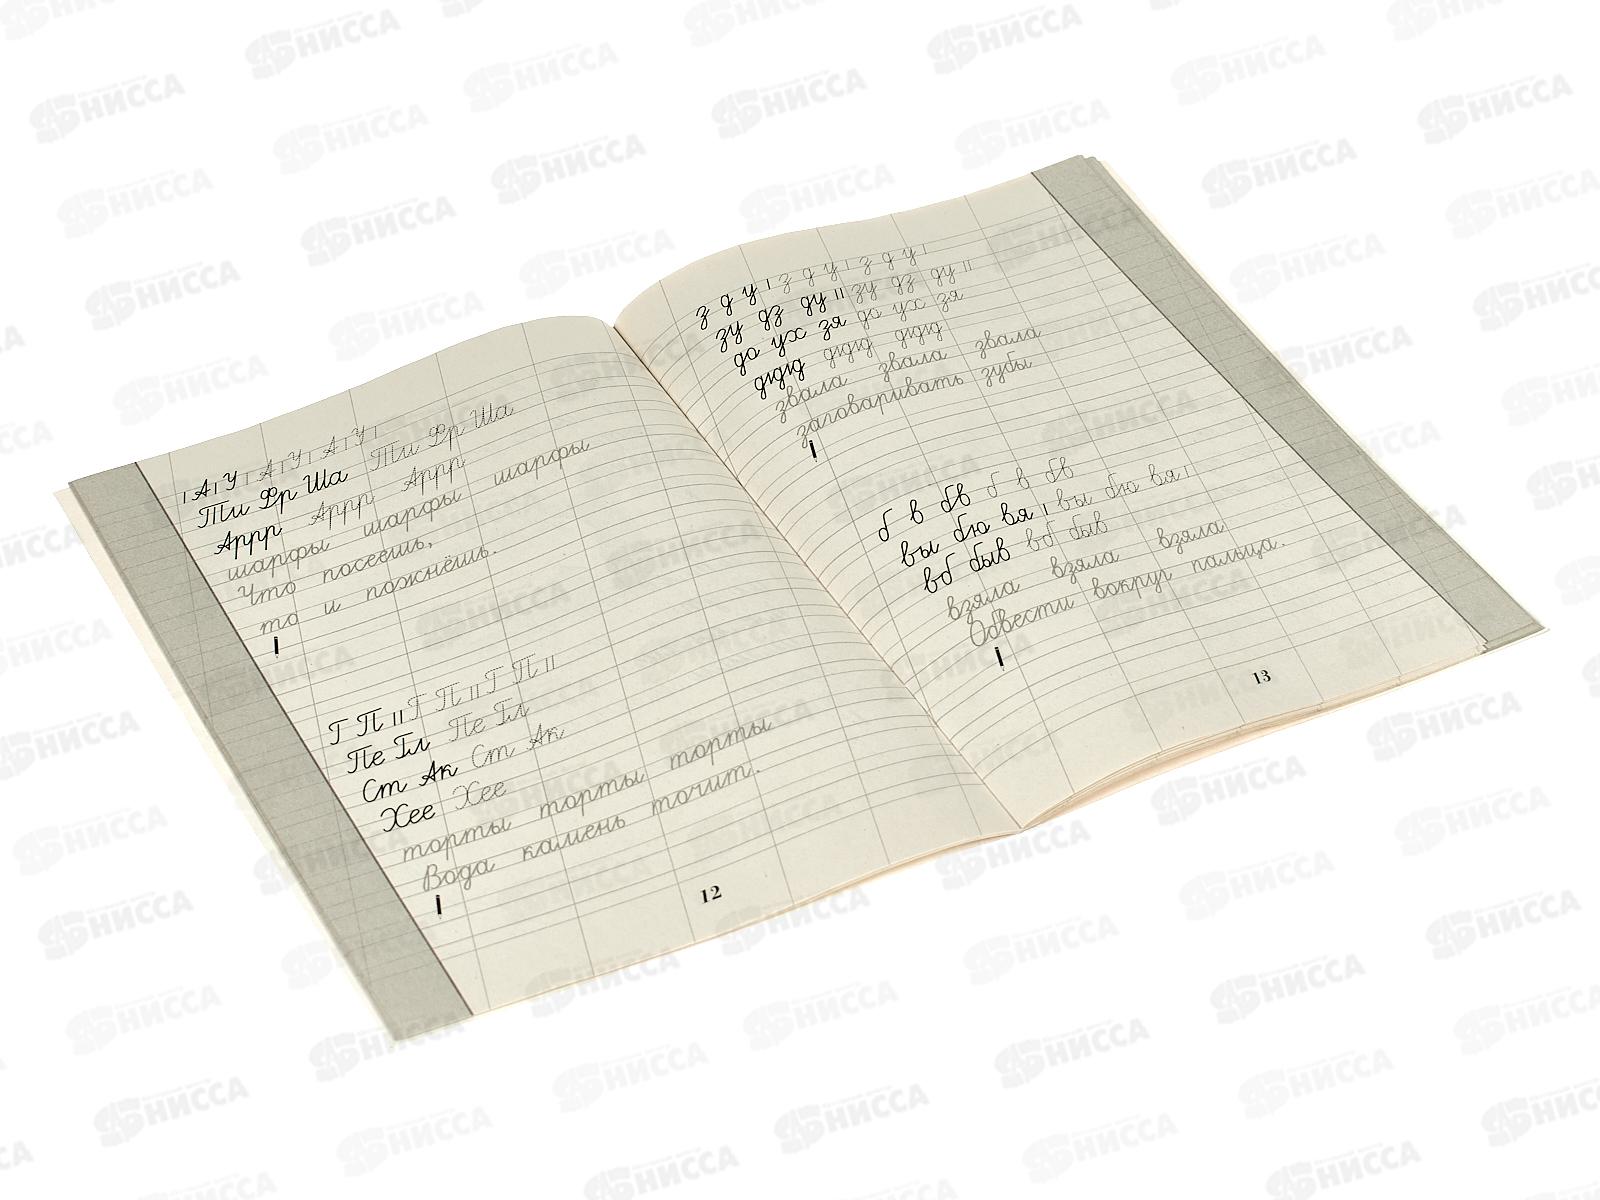 | А | У | А | У | А | У |
Ти Фр Ша Ти Фр Ша
Аррр Аррр Аррр
шарфы шарфы шарфы
Что посеешь,
то и пожнёшь.
Г П || Г П || Г П ||
Пе Гл Пе Гл
Ст Ак Ст Ак
Хее Хее
торты торты торты
Вода камень точит.
12
з д у | з д у | з д у |
зу дз ду || зу дз ду ||
до ух зя до ух зя
дıдıд дıдıд дıдıд
звала звала звала
заговаривать зубы
б в бв б в бв
вы бю вя | вы бю вя |
вб быв вб быв
взяла взяла взяла
Обвести вокруг пальца.
13
НИССА